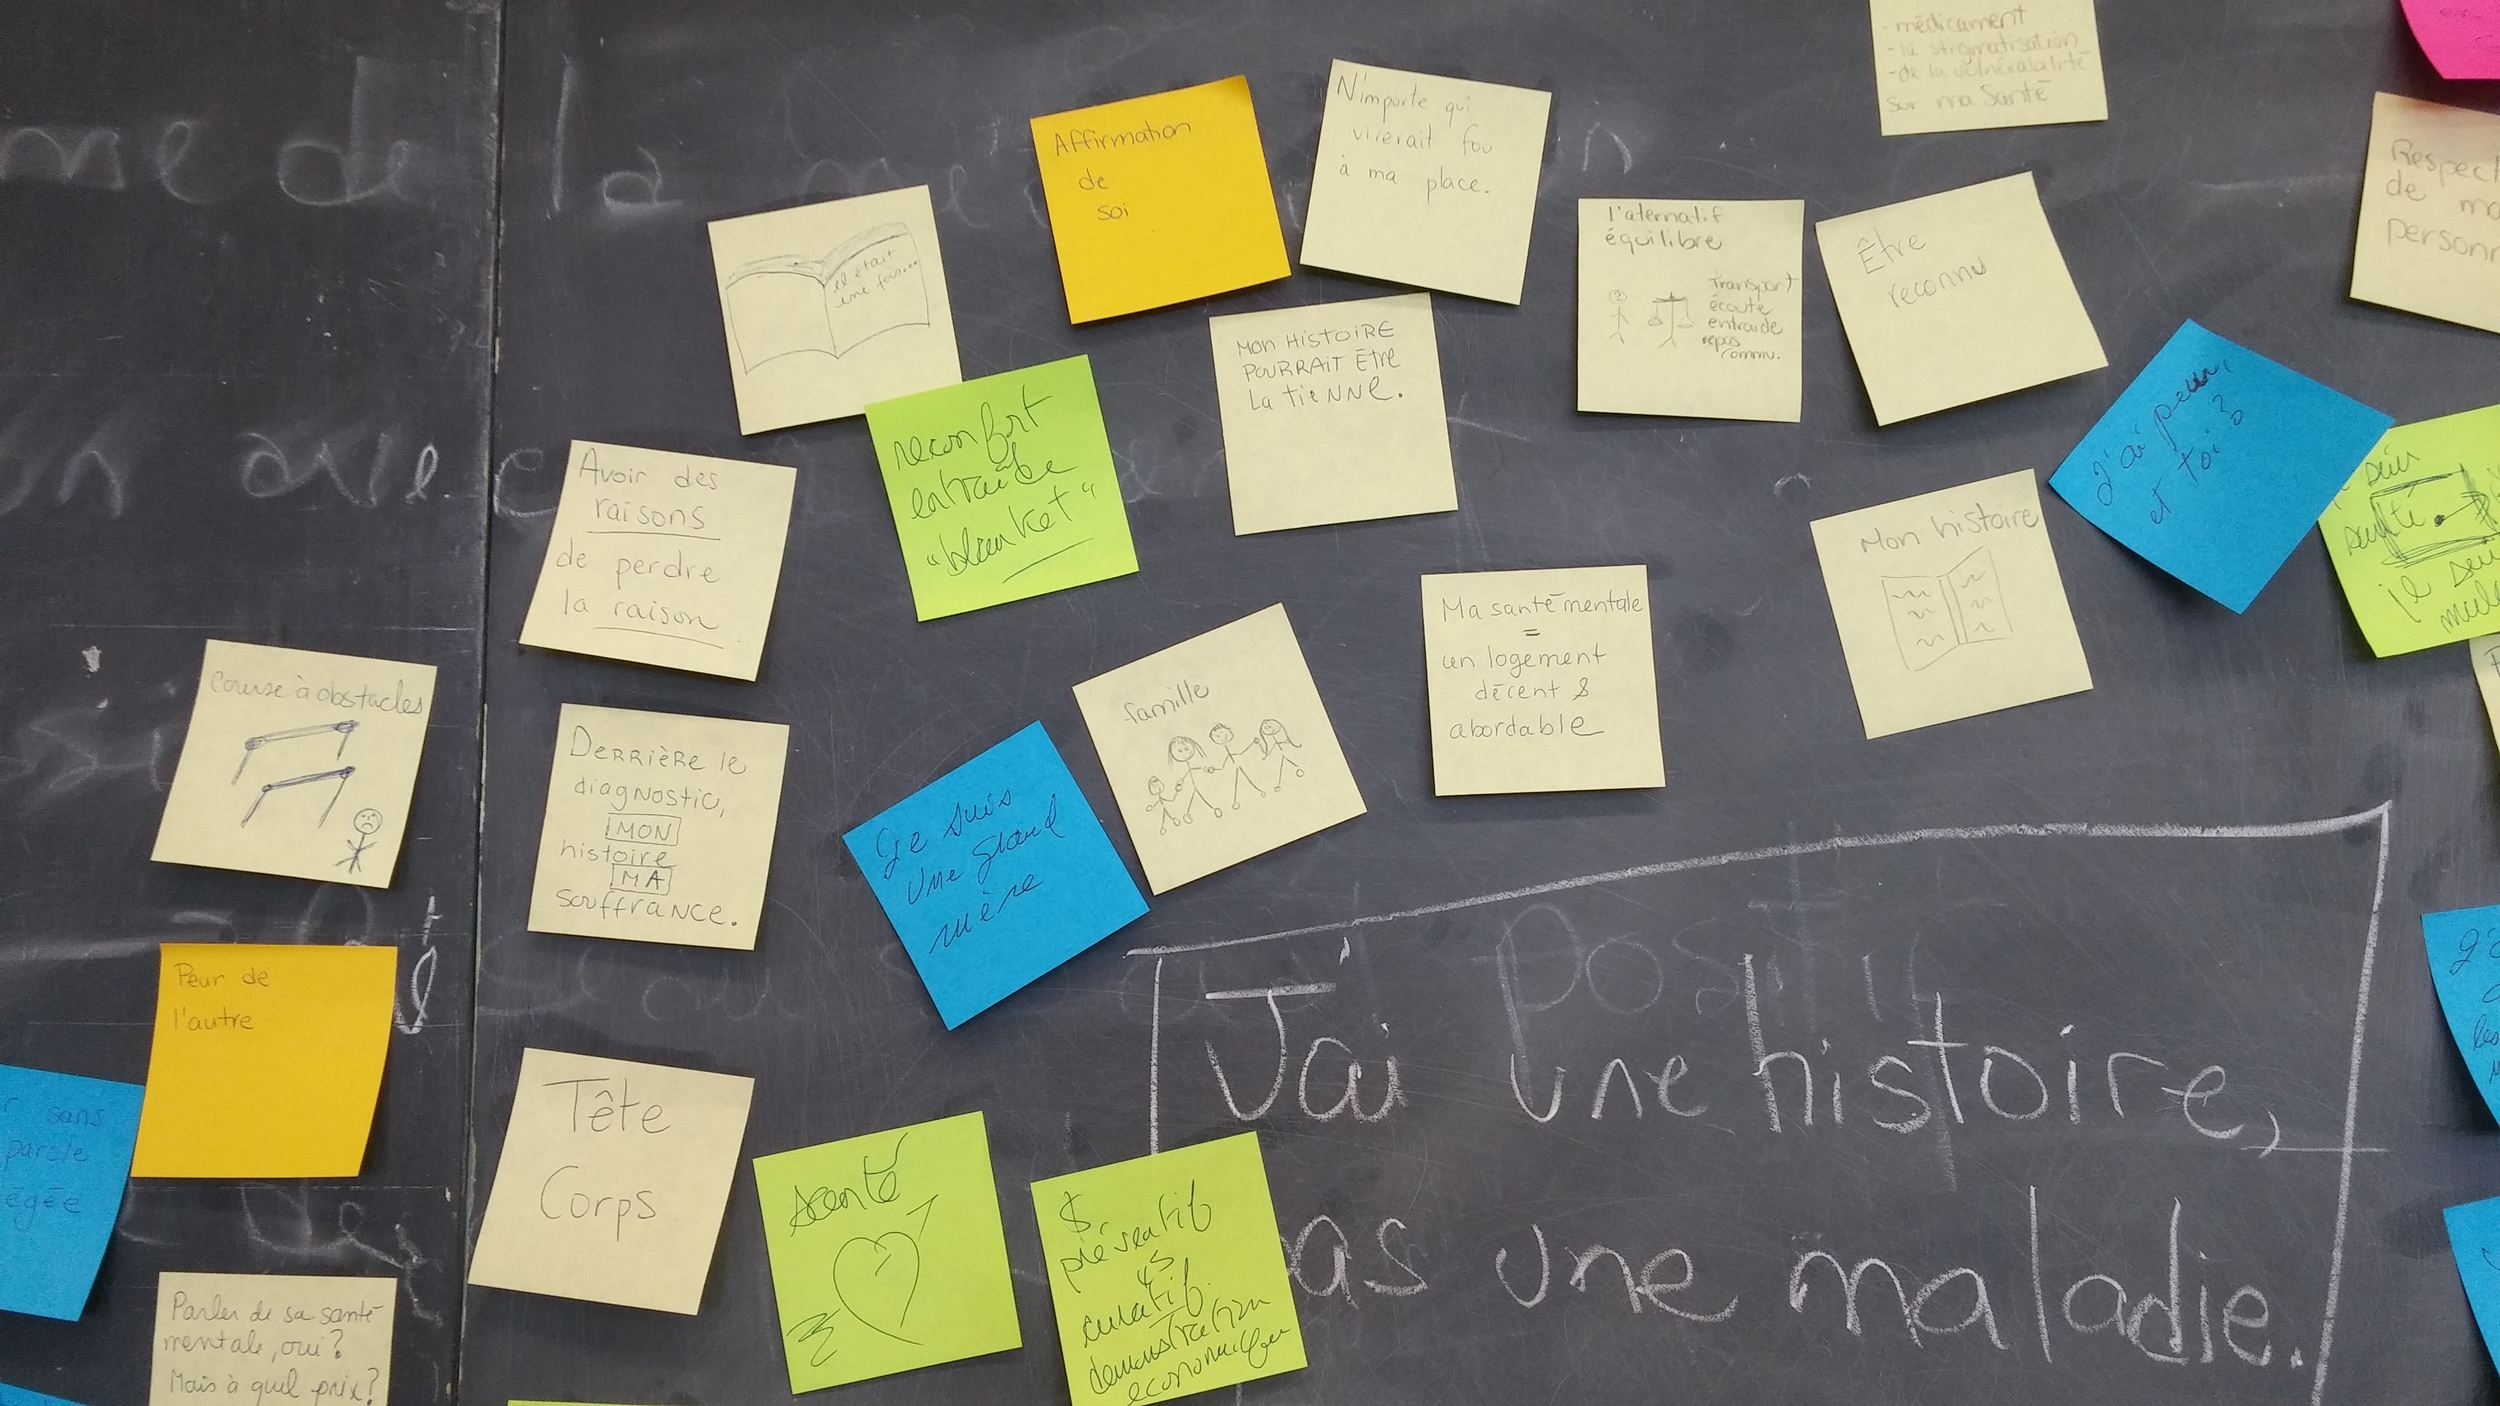 - médicament
- la stigmatisation
- de la vulnérabilité
sur ma santé
Affirmation
de
soi
N'importe qui
virerait fou
à ma place.
il était
une fois...
l'aternatif
équilibre
Transport
écoute
entraide
repas
commu.
Être
reconnu
Respect
de ma
MON HISTOIRE
POURRAIT ÊTRE
LA TIENNE.
J'ai peur,
et toi?
reconfort
entraide
"blanket"
Avoir des
raisons
de perdre
la raison
Mon histoire
Ma santé mentale
=
un logement
décent &
abordable
famille
Course à obstacles
DERRIÈRE le
diagnostic,
MON
histoire
MA
souffrance.
Je suis
une grand
mère
Peur de
l'autre
sans
parole
égée
Tête
Corps
santé
$
préventif
vs
curatif
demonstration
economique
Parler de sa santé
mentale, oui?
Mais à quel prix?
me de la
avec
positif
J'ai une histoire,
pas une maladie.